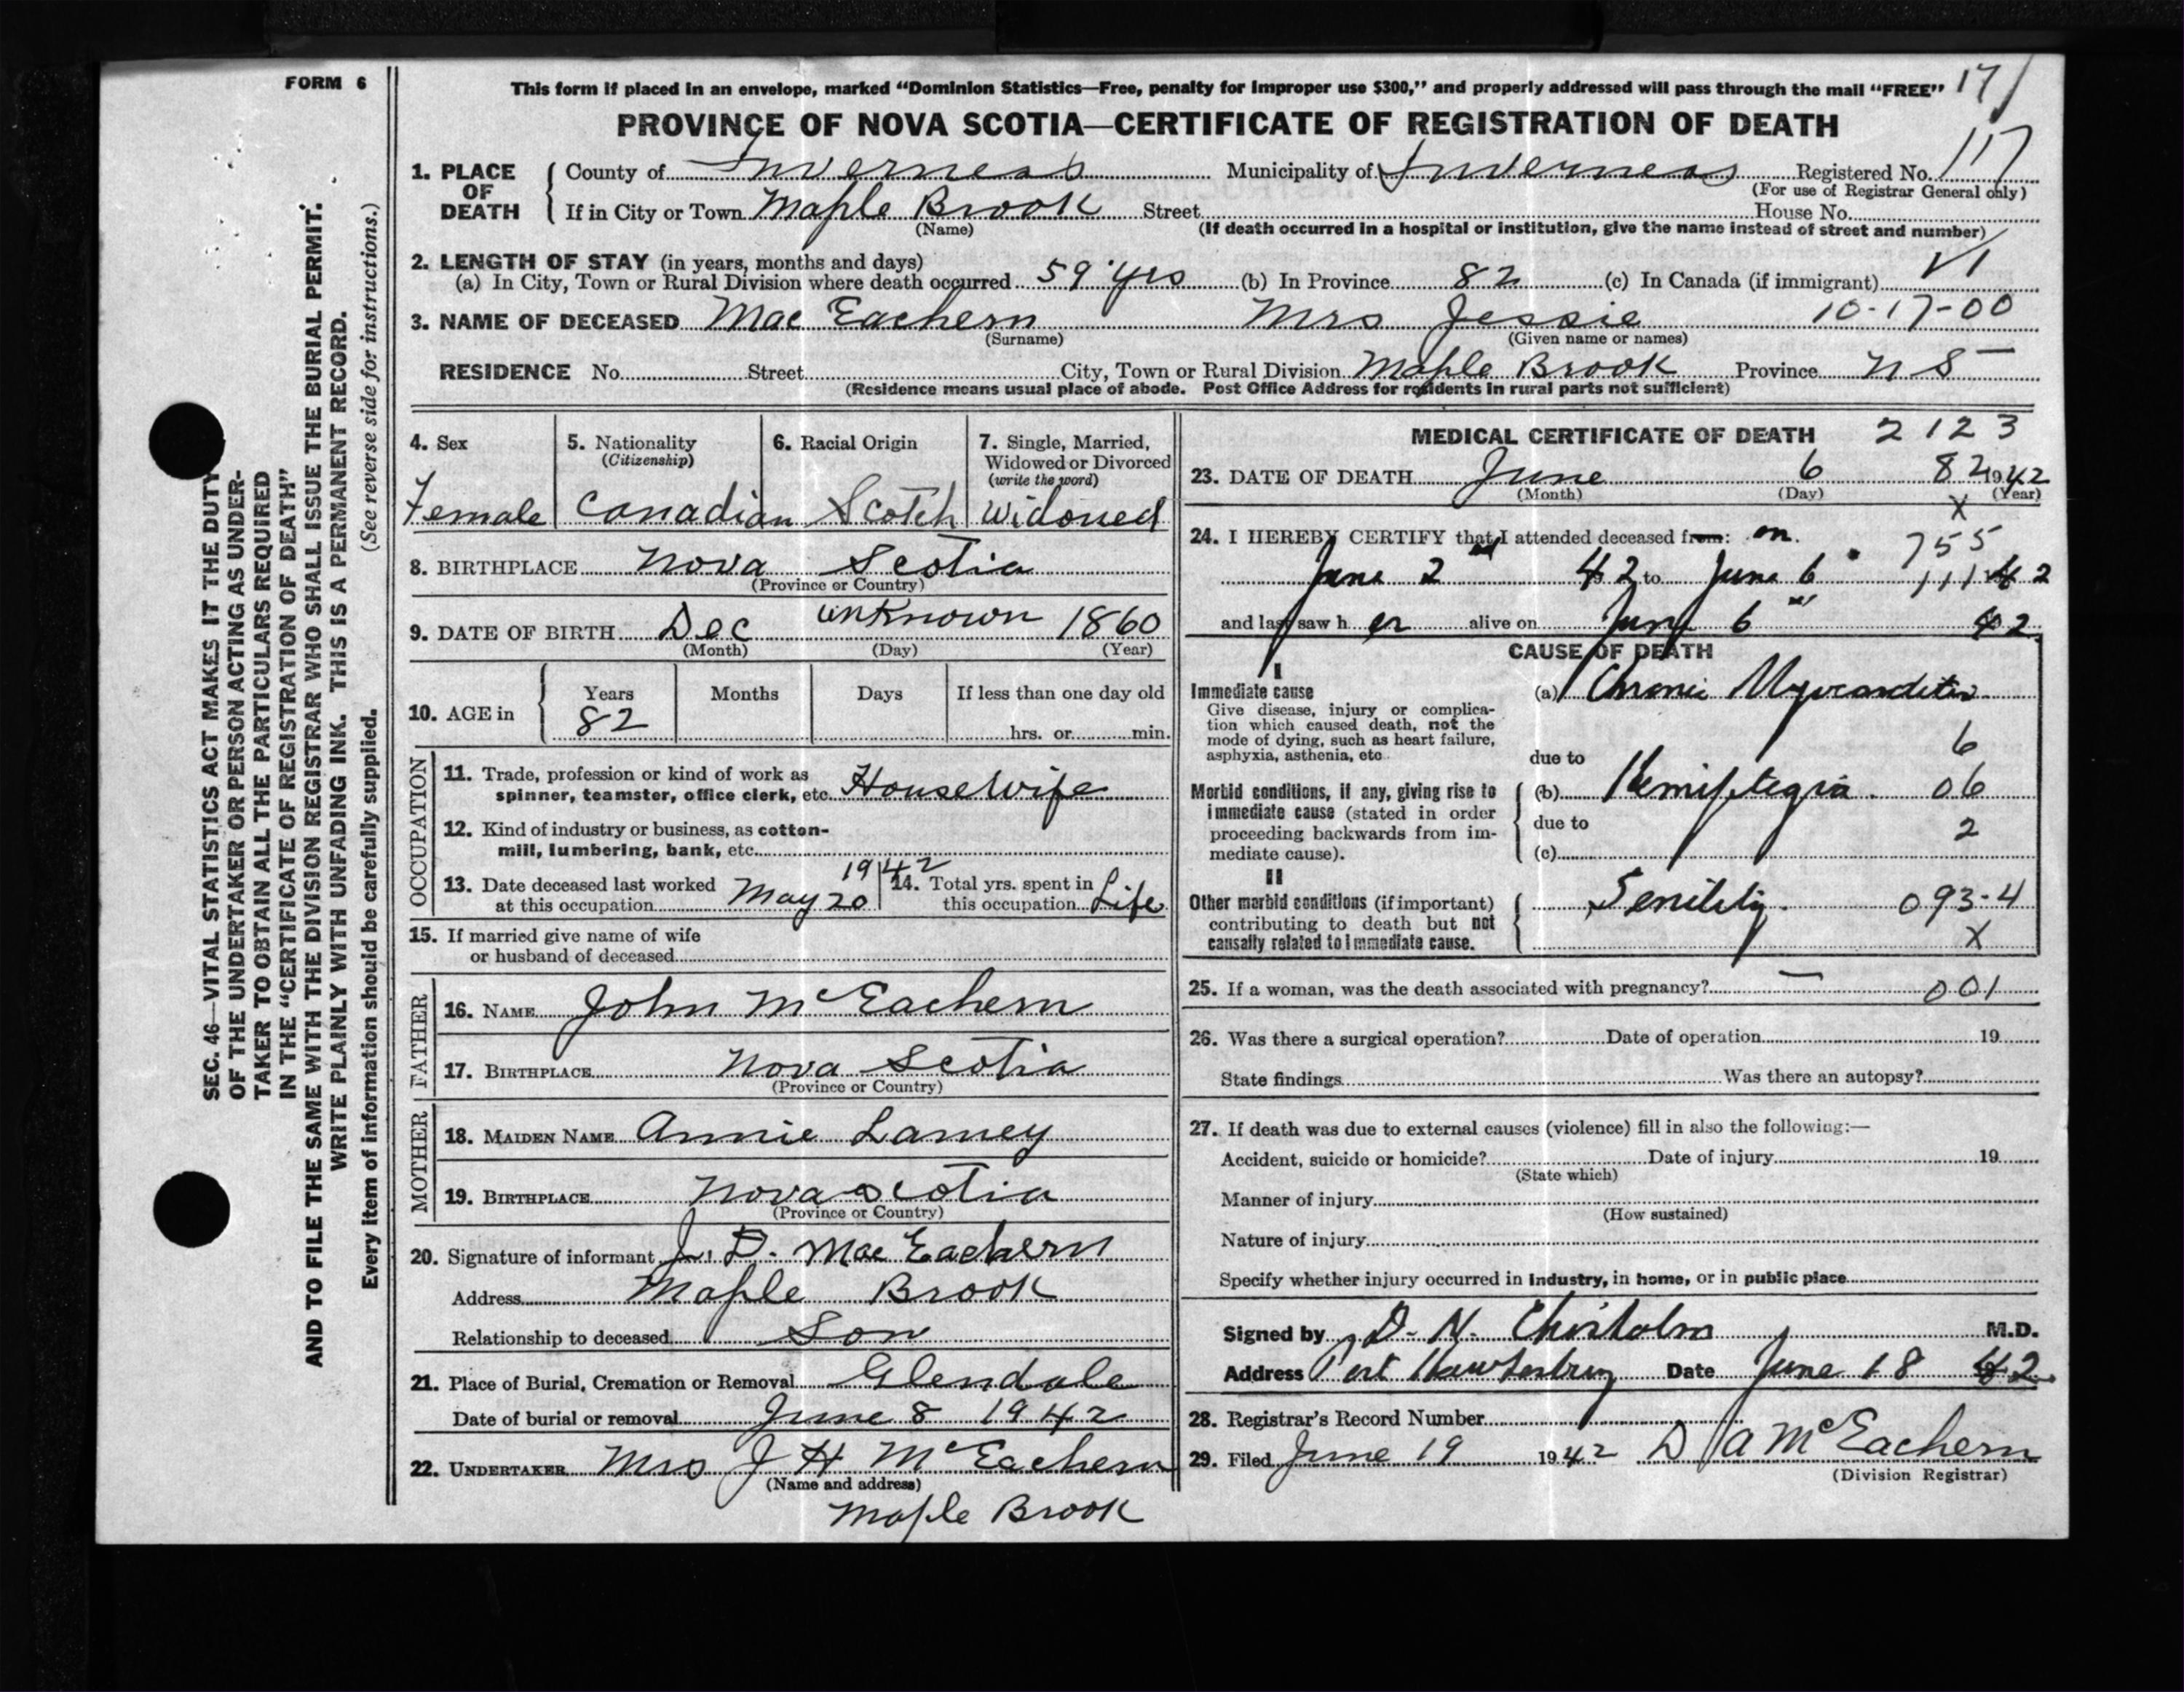 FORM 6
This form if placed in an envelope, marked “Dominion Statistics—Free, penalty for improper use $300,” and properly addressed will pass through the mail “FREE” 17
PROVINCE OF NOVA SCOTIA—CERTIFICATE OF REGISTRATION OF DEATH
1. PLACE OF DEATH
County of Inverness Municipality of Inverness Registered No. 117
(For use of Registrar General only)
If in City or Town Maple Brook Street House No.
(Name) (If death occurred in a hospital or institution, give the name instead of street and number)
2. LENGTH OF STAY (in years, months and days)
(a) In City, Town or Rural Division where death occurred 59 yrs (b) In Province 82 (c) In Canada (if immigrant)
3. NAME OF DECEASED Mac Eachern Mrs Jessie 10-17-00
(Surname) (Given name or names)
RESIDENCE No. Street City, Town or Rural Division Maple Brook Province N S
(Residence means usual place of abode. Post Office Address for residents in rural parts not sufficient)
4. Sex
Female
5. Nationality
(Citizenship)
Canadian
6. Racial Origin
Scotch
7. Single, Married,
Widowed or Divorced
(write the word)
Widowed
8. BIRTHPLACE Nova Scotia
(Province or Country)
9. DATE OF BIRTH Dec unknown 1860
(Month) (Day) (Year)
10. AGE in
Years Months Days If less than one day old
82
hrs. or min.
OCCUPATION
11. Trade, profession or kind of work as
spinner, teamster, office clerk, etc. Housewife
12. Kind of industry or business, as cotton-
mill, lumbering, bank, etc.
13. Date deceased last worked
at this occupation May 20 1942
14. Total yrs. spent in
this occupation Life
15. If married give name of wife
or husband of deceased
FATHER
16. NAME John McEachern
17. BIRTHPLACE Nova Scotia
(Province or Country)
MOTHER
18. MAIDEN NAME Annie Lamey
19. BIRTHPLACE Nova Scotia
(Province or Country)
20. Signature of informant J. D. Mac Eachern
Address Maple Brook
Relationship to deceased Son
21. Place of Burial, Cremation or Removal Glendale
Date of burial or removal June 8 1942
22. UNDERTAKER Mrs J H McEachern
(Name and address)
Maple Brook
MEDICAL CERTIFICATE OF DEATH 2123
23. DATE OF DEATH June 6 82 1942
(Month) (Day) (Year)
X
24. I HEREBY CERTIFY that I attended deceased from: on.
755
June 2nd 42 to June 6 111 42
and last saw h er alive on June 6 42
CAUSE OF DEATH
I
Immediate cause
Give disease, injury or complica-
tion which caused death, not the
mode of dying, such as heart failure,
asphyxia, asthenia, etc.
(a) Chronic Myocarditis
due to 6
Morbid conditions, if any, giving rise to
immediate cause (stated in order
proceeding backwards from im-
mediate cause).
(b) Hemiplegia. 06
due to 2
(c)
II
Other morbid conditions (if important)
contributing to death but not
causally related to immediate cause.
Senility. 093-4
X
25. If a woman, was the death associated with pregnancy? — 001
26. Was there a surgical operation? Date of operation 19
State findings Was there an autopsy?
27. If death was due to external causes (violence) fill in also the following:—
Accident, suicide or homicide? Date of injury 19
(State which)
Manner of injury
(How sustained)
Nature of injury
Specify whether injury occurred in industry, in home, or in public place
Signed by D. N. Chisholm M.D.
Address Port Hawkesbury Date June 18 42
28. Registrar's Record Number
29. Filed June 19 1942 D A McEachern
(Division Registrar)
SEC. 46—VITAL STATISTICS ACT MAKES IT THE DUTY
OF THE UNDERTAKER OR PERSON ACTING AS UNDER-
TAKER TO OBTAIN ALL THE PARTICULARS REQUIRED
IN THE “CERTIFICATE OF REGISTRATION OF DEATH”
AND TO FILE THE SAME WITH THE DIVISION REGISTRAR WHO SHALL ISSUE THE BURIAL PERMIT.
WRITE PLAINLY WITH UNFADING INK. THIS IS A PERMANENT RECORD.
Every item of information should be carefully supplied. (See reverse side for instructions.)